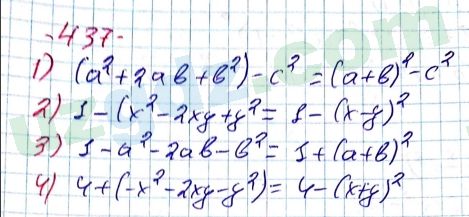 -437-
1) (a²+2ab+b²)-c² = (a+b)²-c²
2) 1-(x²-2xy+y²= 1-(x-y)²
3) 1-a²-2ab-b²= 1+(a+b)²
4) 4+(-x²-2xy-y²)= 4-(x+y)²